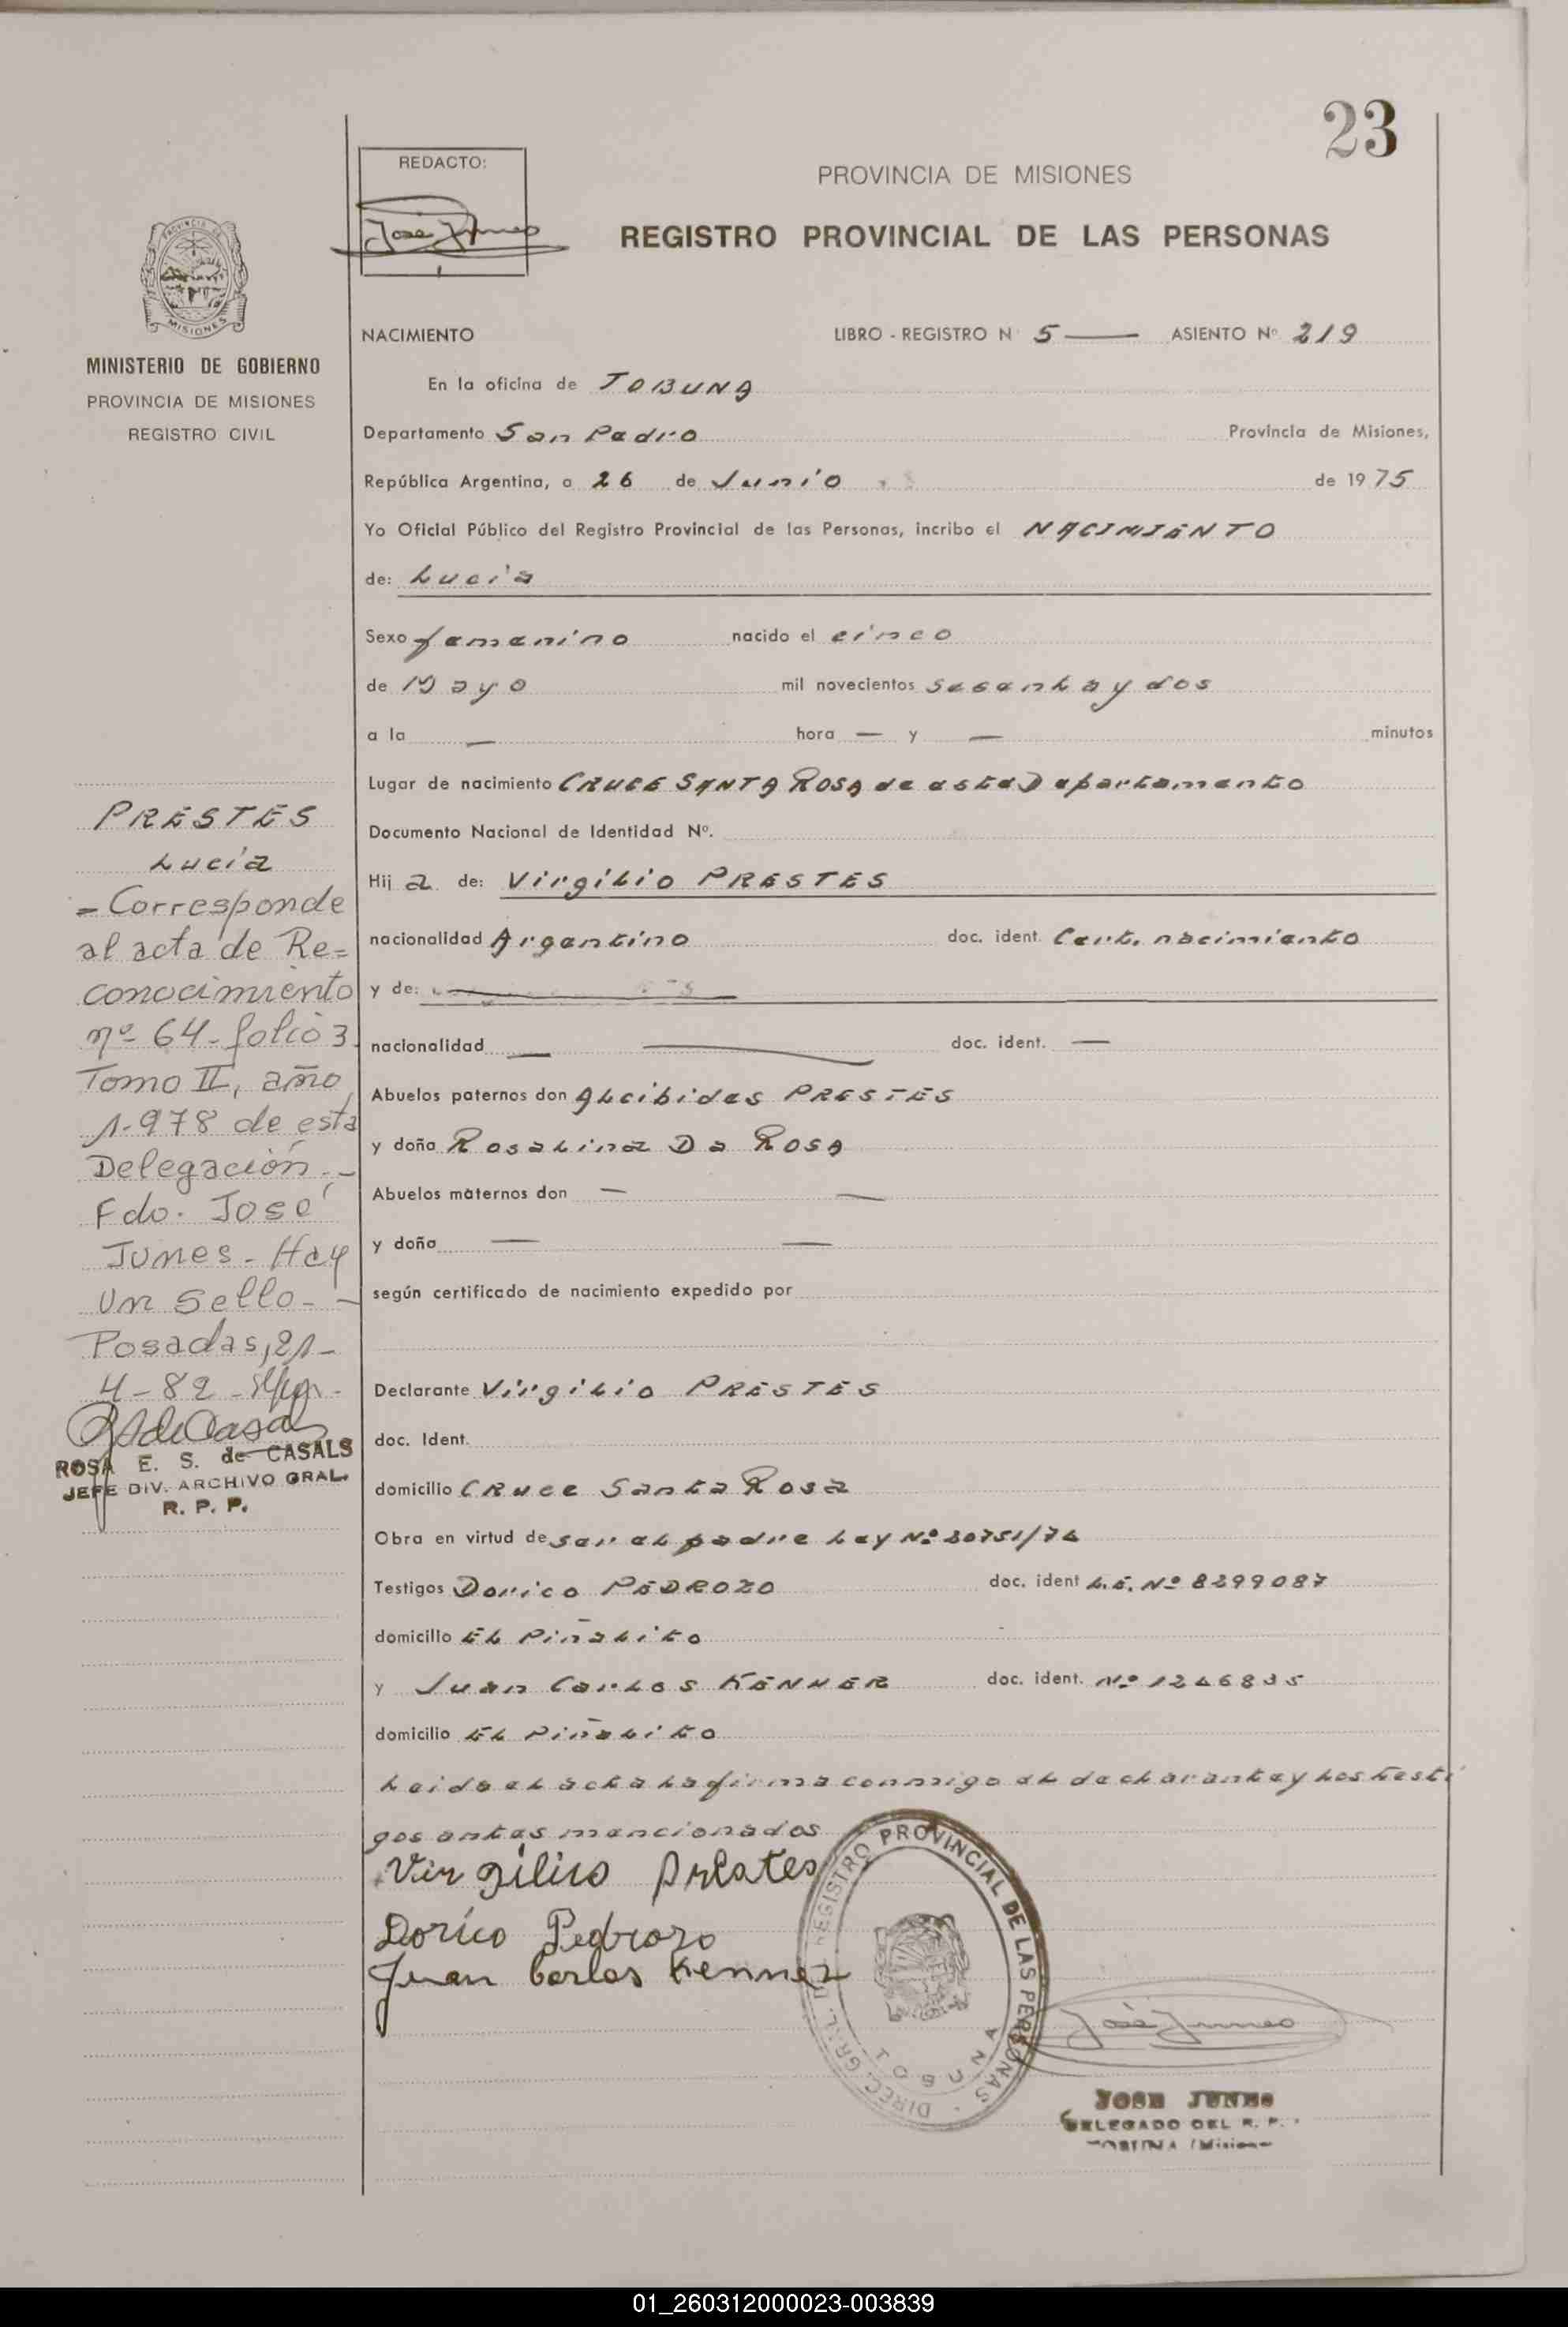 23
REDACTO:
José Junes
PROVINCIA DE MISIONES
REGISTRO PROVINCIAL DE LAS PERSONAS
PROVINCIA DE
MISIONES
MINISTERIO DE GOBIERNO
PROVINCIA DE MISIONES
REGISTRO CIVIL
NACIMIENTO LIBRO - REGISTRO N 5 — ASIENTO Nº 219
En la oficina de TOBUNA
Departamento San Pedro Provincia de Misiones,
República Argentina, a 26 de Junio de 1975
Yo Oficial Público del Registro Provincial de las Personas, incribo el NACIMIENTO
de: Lucia
Sexo femenino nacido el cinco
de Mayo mil novecientos sesenta y dos
a la — hora — y — minutos
Lugar de nacimiento CRUCE SANTA ROSA de este Departamento
Documento Nacional de Identidad Nº.
Hij a de: Virgilio PRESTES
nacionalidad Argentino doc. ident. Cert. nacimiento
y de: —
nacionalidad — — doc. ident. —
Abuelos paternos don Alcibides PRESTES
y doña Rosalina Da Rosa
Abuelos maternos don — —
y doña — —
según certificado de nacimiento expedido por
Declarante Virgilio PRESTES
doc. Ident.
domicilio CRUCE Santa Rosa
Obra en virtud de ser el padre Ley Nº 20751/74
Testigos Dorico PEDROZO doc. ident L.E. Nº 8299087
domicilio El Piñalito
y Juan Carlos KENNER doc. ident. Nº 1246835
domicilio El Piñalito
Leida el acta la firma conmigo el declarante y los testi
gos antes mencionados
Virgilio Prestes
Dorico Pedrozo
Juan Carlos Kenner
DIREC. GRAL. D REGISTRO PROVINCIAL DE LAS PERSONAS
TOBUNA
José Junes
JOSE JUNES
DELEGADO DEL R. P.
TOBUNA (Misiones
PRESTES
Lucia
- Corresponde
al acta de Re=
conocimiento
nº 64 - folio 3.
Tomo II, año
1.978 de esta
Delegación.-
Fdo. José
Junes - Hay
un sello.-
Posadas, 21-
4-82 -
ROSA E. S. de CASALS
JEFE DIV. ARCHIVO GRAL.
R. P. P.
01_260312000023-003839